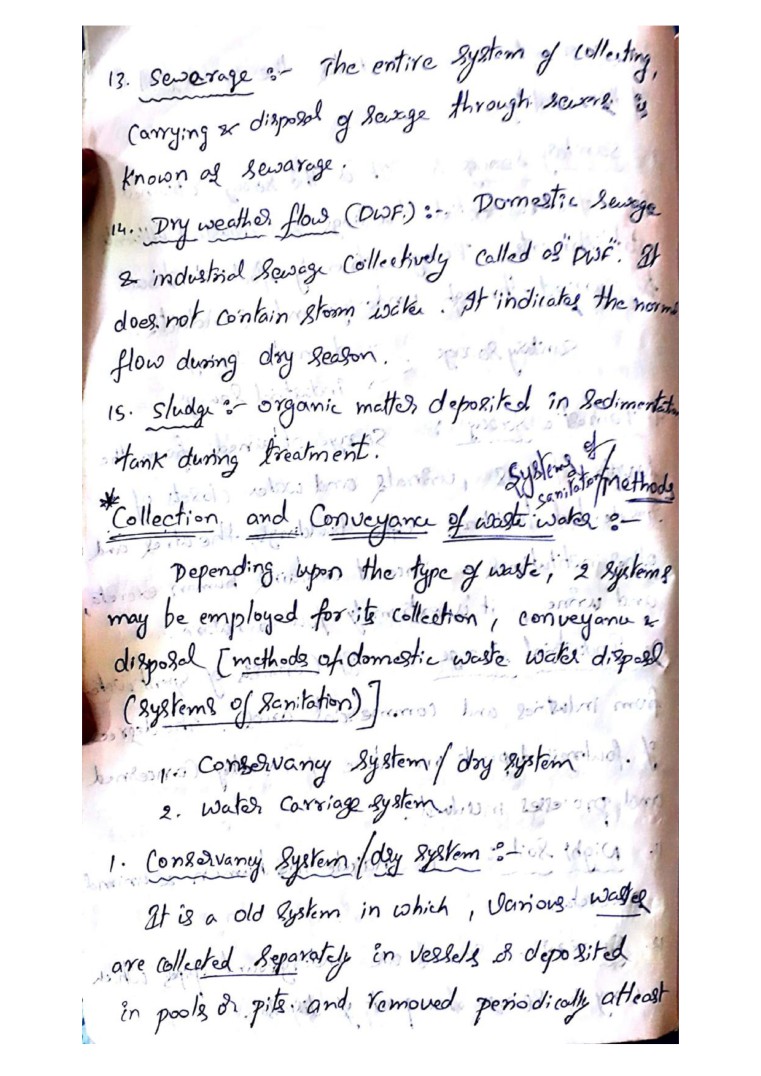 13. Sewerage :- The entire system of collecting,
carrying & disposal of sewage through sewers is
known as sewarage.
14. Dry weather flow (DWF.) :- Domestic sewage
& industrial sewage collectively called as "DWF". It
does not contain storm water. It indicates the norm
flow during dry season.
15. Sludge :- organic matter deposited in sedimentation
tank during treatment.
Systems of
sanitation/methods
*Collection and Conveyance of waste water :-
Depending upon the type of waste, 2 systems
may be employed for its collection, conveyance &
disposal [methods of domestic waste water disposal
(systems of sanitation)].
1. Conservancy system / dry system
2. water carriage system
1. Conservancy system / dry system :-
It is a old system in which, various wastes
are collected separately in vessels or deposited
in pools or pits and removed periodically atleast